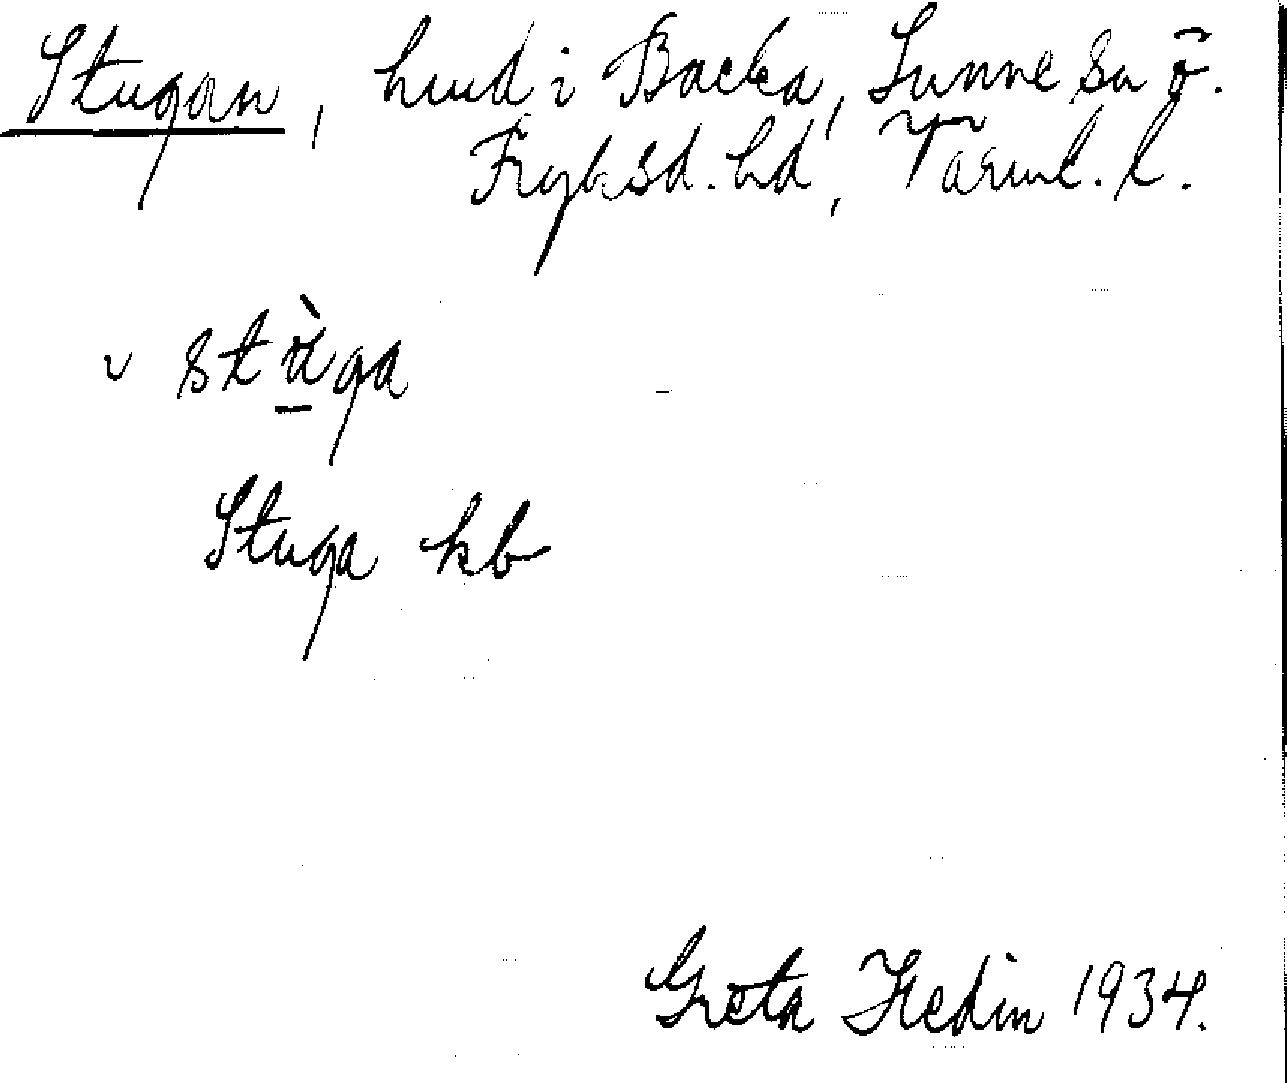 Stugan, hmd i Backa, Sunne sn ö.
Fryksd. hd, Värml. l.
v stùga
Stuga kb
Greta Hedin 1934.